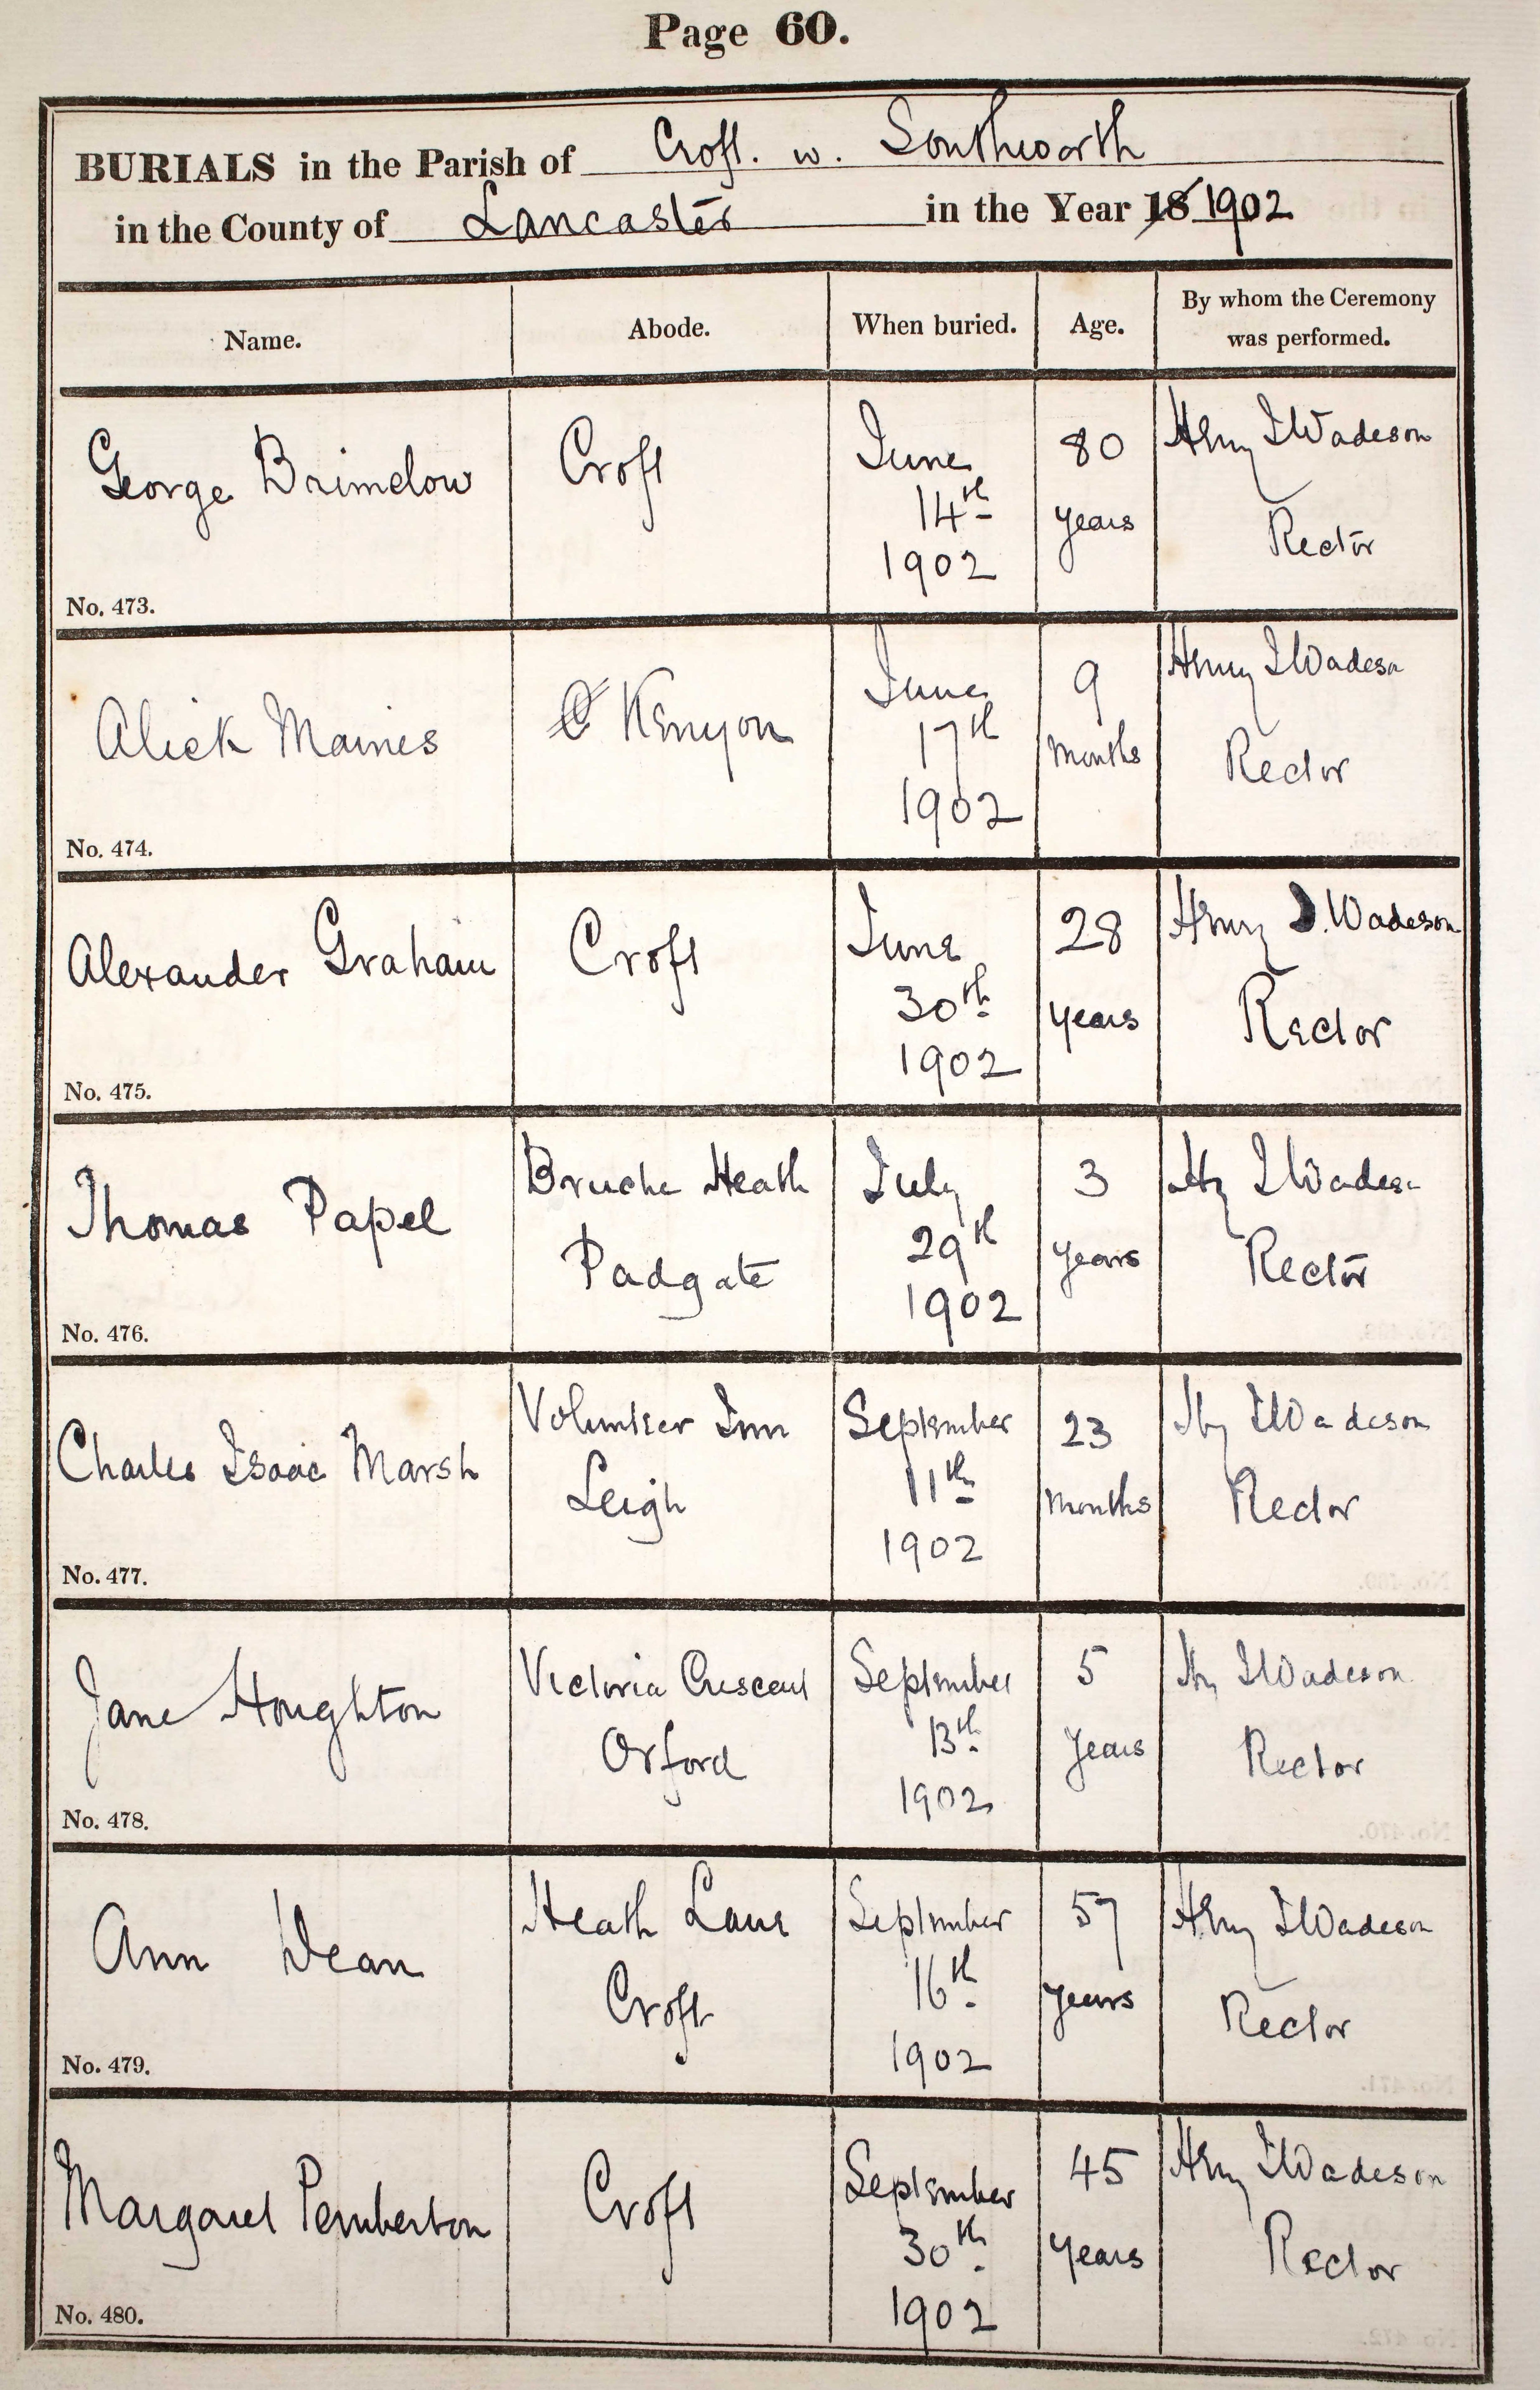 Page 60.
BURIALS in the Parish of Croft. w. Southworth
in the County of Lancaster in the Year 18 1902
Name. Abode. When buried. Age. By whom the Ceremony was performed.
George Brimelow Croft June 14th 1902 80 years Henry I Wadeson Rector
No. 473.
Alick Maines C Kenyon June 17th 1902 9 Months Henry I Wadeson Rector
No. 474.
Alexander Graham Croft June 30th 1902 28 years Henry I. Wadeson Rector
No. 475.
Thomas Papel Bruche Heath Padgate July 29th 1902 3 years Hy I Wadeson Rector
No. 476.
Charles Isaac Marsh Volunteer Inn Leigh September 11th 1902 23 Months Hy I Wadeson Rector
No. 477.
Jane Houghton Victoria Crescent Orford September 13th 1902 5 years Hy I Wadeson Rector
No. 478.
Ann Dean Heath Lane Croft September 16th 1902 57 years Henry I Wadeson Rector
No. 479.
Margaret Pemberton Croft September 30th 1902 45 years Henry I Wadeson Rector
No. 480.